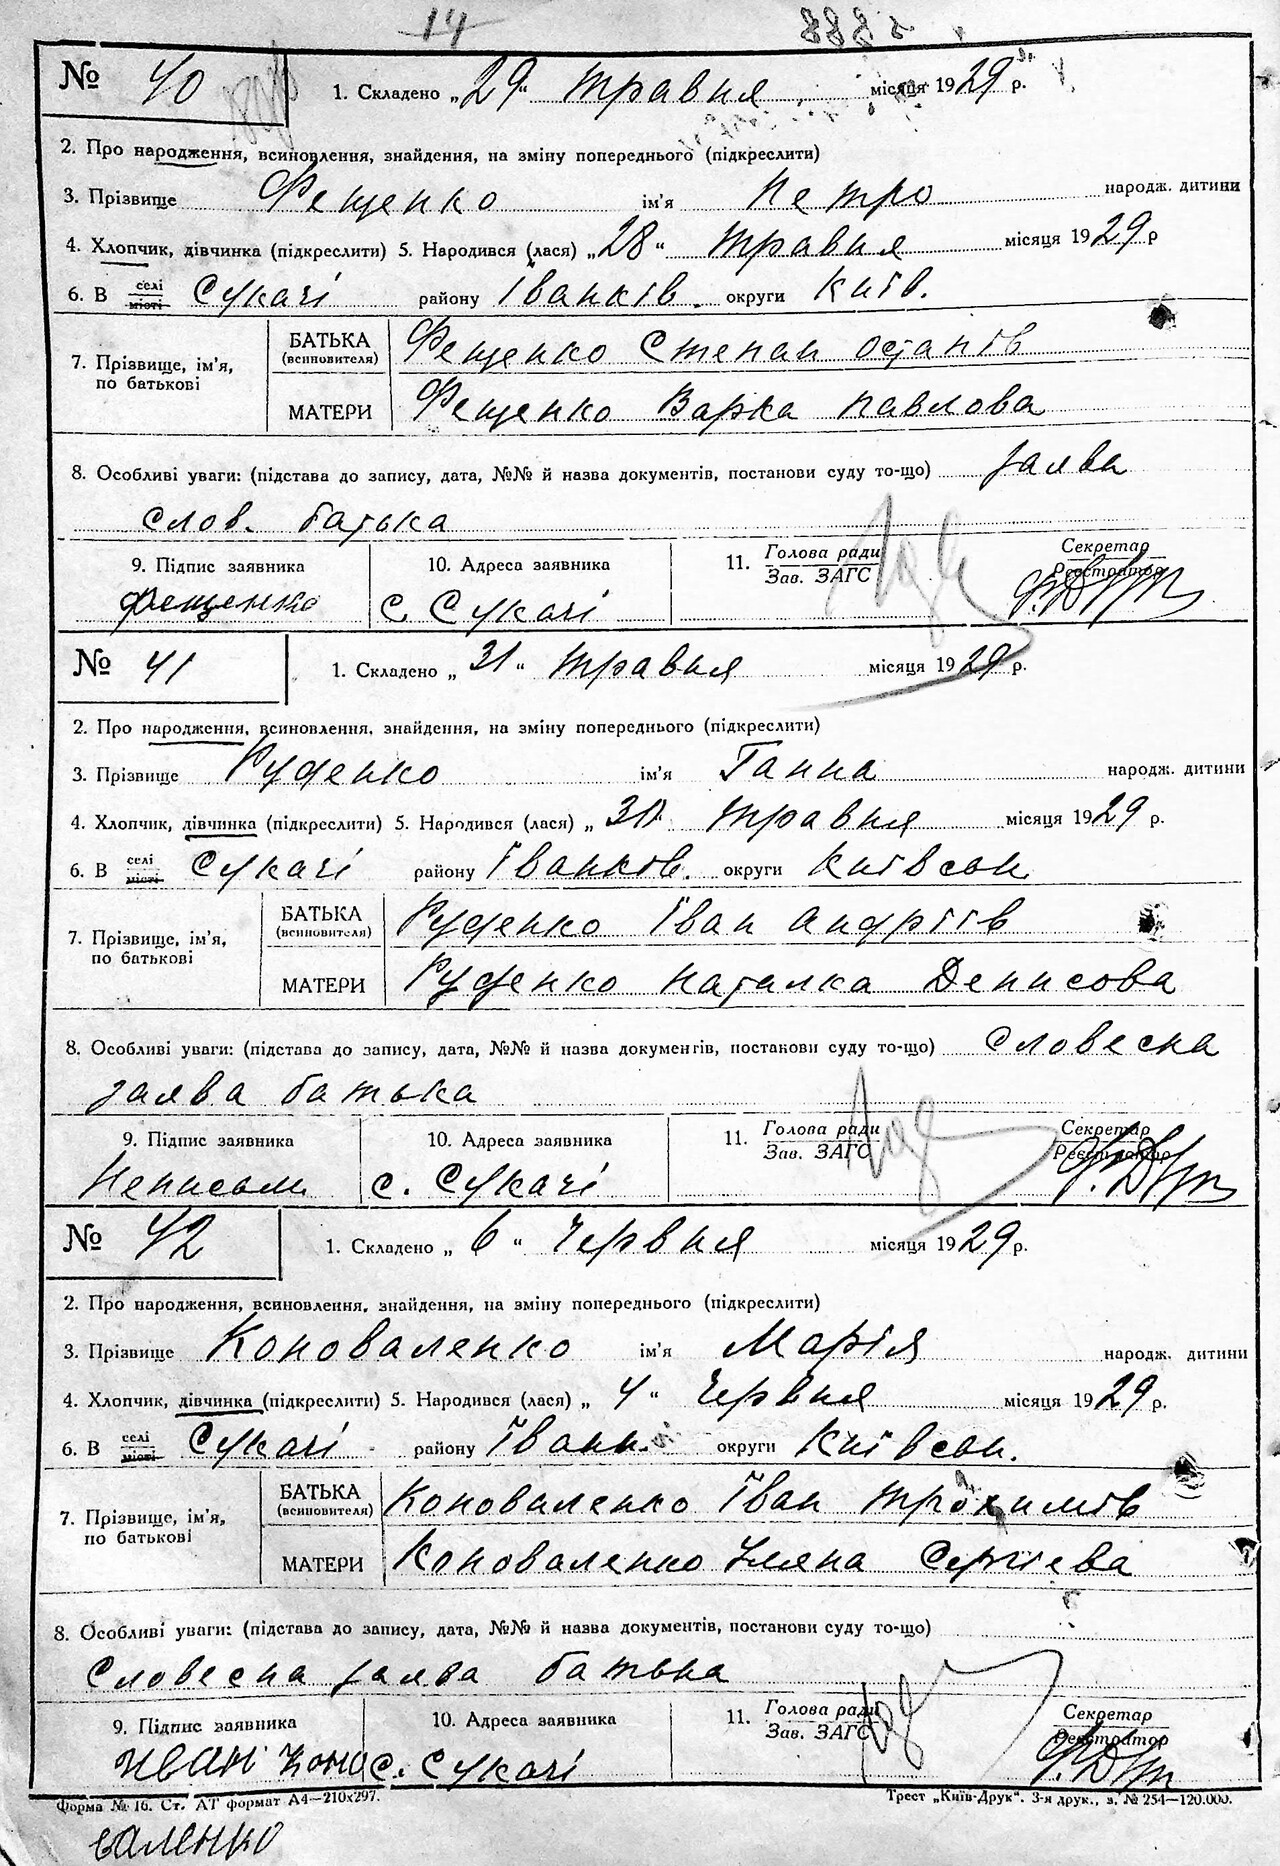 14
№ 40 1. Складено „29“ травня місяця 1929 р.
2. Про народження, всиновлення, знайдення, на зміну попереднього (підкреслити)
3. Прізвище Фещенко ім'я Петро народж. дитини
4. Хлопчик, дівчинка (підкреслити) 5. Народився (лася) „28“ травня місяця 1929 р
6. В селі Сукачі району Іванків. округи Київ.
місті
БАТЬКА Фещенко Степан Остапів
(всиновителя)
7. Прізвище, ім'я,
по батькові
МАТЕРИ Фещенко Варка Павлова
8. Особливі уваги: (підстава до запису, дата, №№ й назва документів, постанови суду то-що) заява
слов. батька
9. Підпис заявника 10. Адреса заявника 11. Голова ради Секретар
Зав. ЗАГС Реєстратор
Фещенко с. Сукачі
№ 41 1. Складено „31“ травня місяця 1929 р.
2. Про народження, всиновлення, знайдення, на зміну попереднього (підкреслити)
3. Прізвище Руденко ім'я Ганна народж. дитини
4. Хлопчик, дівчинка (підкреслити) 5. Народився (лася) „31 травня місяця 1929 р.
6. В селі Сукачі району Іванків. округи Київськ
місті
БАТЬКА Руденко Іван Андріїв
(всиновителя)
7. Прізвище, ім'я,
по батькові
МАТЕРИ Руденко Наталка Денисова
8. Особливі уваги: (підстава до запису, дата, №№ й назва документів, постанови суду то-що) Словесна
заява батька
9. Підпис заявника 10. Адреса заявника 11. Голова ради Секретар
Зав. ЗАГС Реєстратор
Неписьм. с. Сукачі
№ 42 1. Складено „6“ Червня місяця 1929 р.
2. Про народження, всиновлення, знайдення, на зміну попереднього (підкреслити)
3. Прізвище Коноваленко ім'я Марія народж. дитини
4. Хлопчик, дівчинка (підкреслити) 5. Народився (лася) „4“ Червня місяця 1929 р.
6. В селі Сукачі району Іванк. округи Київськ.
місті
БАТЬКА Коноваленко Іван Трохимів
(всиновителя)
7. Прізвище, ім'я,
по батькові
МАТЕРИ Коноваленко Уляна Сергієва
8. Особливі уваги: (підстава до запису, дата, №№ й назва документів, постанови суду то-що)
Словесна заява батька
9. Підпис заявника 10. Адреса заявника 11. Голова ради Секретар
Зав. ЗАГС Реєстратор
Иван Коно с. Сукачі
Форма № 16. Ст. АТ формат А4—210х297. Трест „Київ-Друк“. 3-я друк., з. № 254—120.000.
валенко